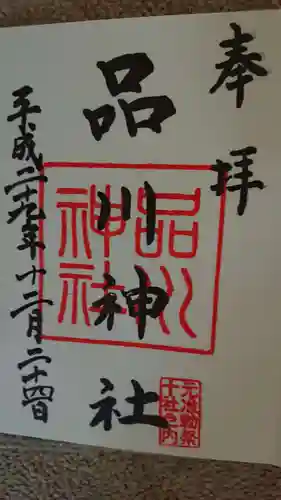 奉拝
品川神社
品川神社
元准勅祭
十社之内
平成二十九年十二月二十四日